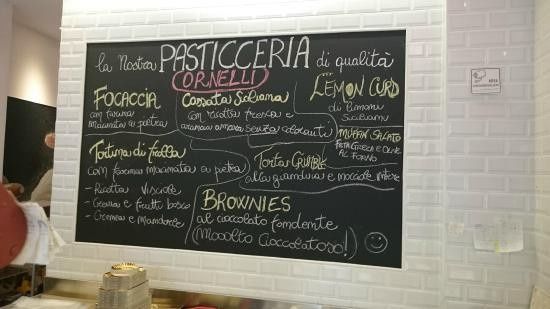 la Nostra PASTICCERIA di qualità
CORNELLI
FOCACCIA
con farina
macinata a pietra
Cassata Siciliana
con ricotta fresca e
senza coloranti
LEMON CURD
di limoni
Siciliani
MUFFIN SALATO
FETA GRECA E OLIVE
AL FORNO
Tortina di frolla
com farina macinata a pietra
- Ricotta Visciole
- Crema e frutti bosco
- Crema e Mandorle
Torta CRUMBLE
alla gianduia e nocciole intere
BROWNIES
al cioccolato fondente
(Mooolto Cioccolatoso!)